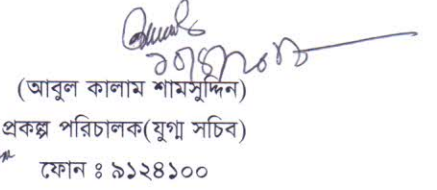 (আবুল কালাম শামসুদ্দিন)
প্রকল্প পরিচালক(যুগ্ম সচিব)
ফোন ঃ ৯১২৪১০০